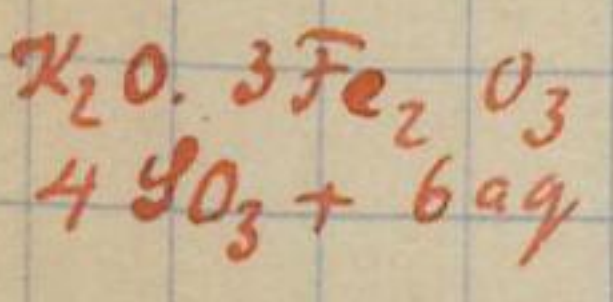 K₂O. 3Fe₂O₃
4SO₃ + 6aq